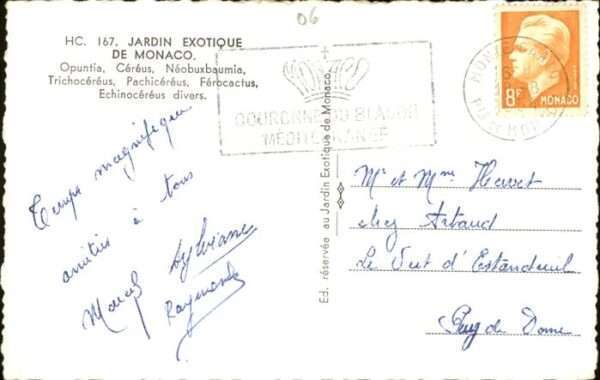 06
HC. 167. JARDIN EXOTIQUE
DE MONACO.
Opuntia, Céréus, Néobuxbaumia,
Trichocéréus, Pachicéréus, Férocactus,
Echinocéréus divers.
COURONNE DU BLASON
MEDITERRANEE
8F MONACO
Temps magnifique
amitiés à tous
Marcel Sylviane
Raymonde
Ed. réservée au Jardin Exotique de Monaco.
Mr et Mme Hervet
chez Artaud
Le Sut d'Estandeuil
Puy de Dome